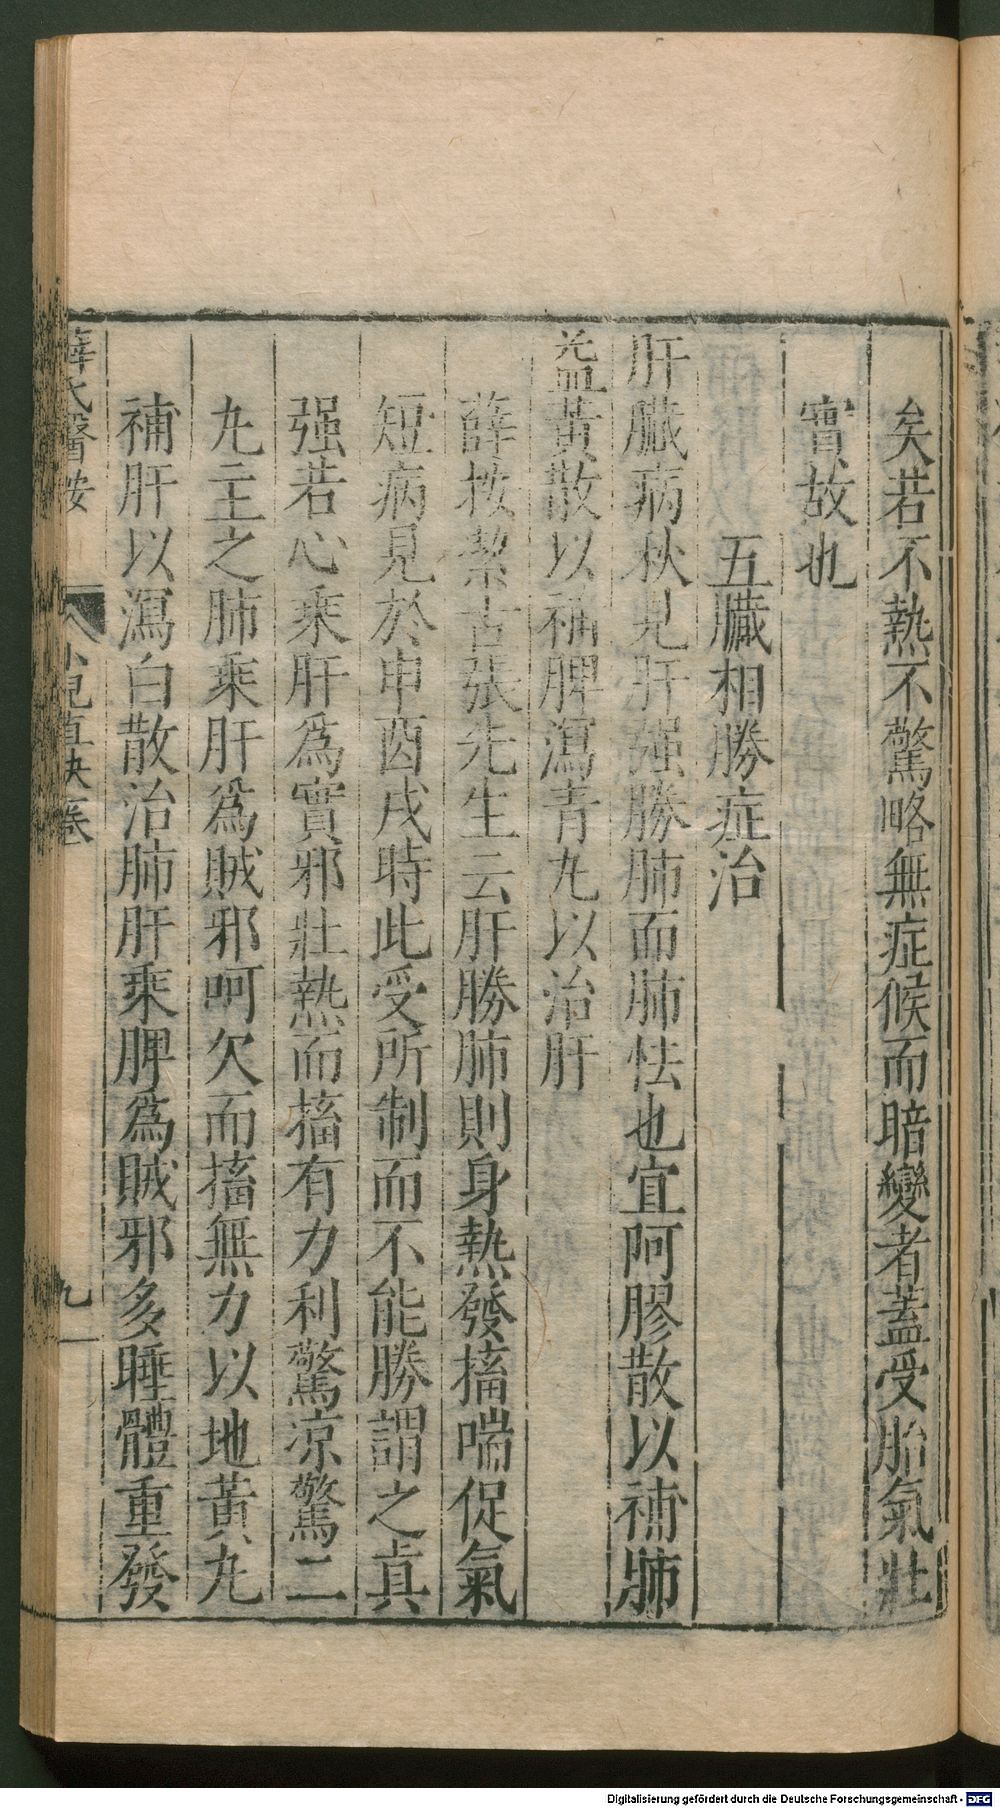 矣若不熱不驚略無症候而暗變者蓋受胎氣壯
實故也
五臟相勝症治
肝臟病秋見肝强勝肺而肺怯也宜阿膠散以補肺
益黃散以補脾瀉青丸以治肝
薛按潔古張先生云肝勝肺則身熱發搐喘促氣
短病見於申酉戌時此受所制而不能勝謂之眞
强若心乘肝爲實邪壯熱而搐有力利驚凉驚二
丸主之肺乘肝爲賊邪呵欠而搐無力以地黃丸
補肝以瀉白散治肺肝乘脾爲賊邪多睡體重發
薛氏醫按 小兒直訣卷 九
Digitalisierung gefördert durch die Deutsche Forschungsgemeinschaft - DFG